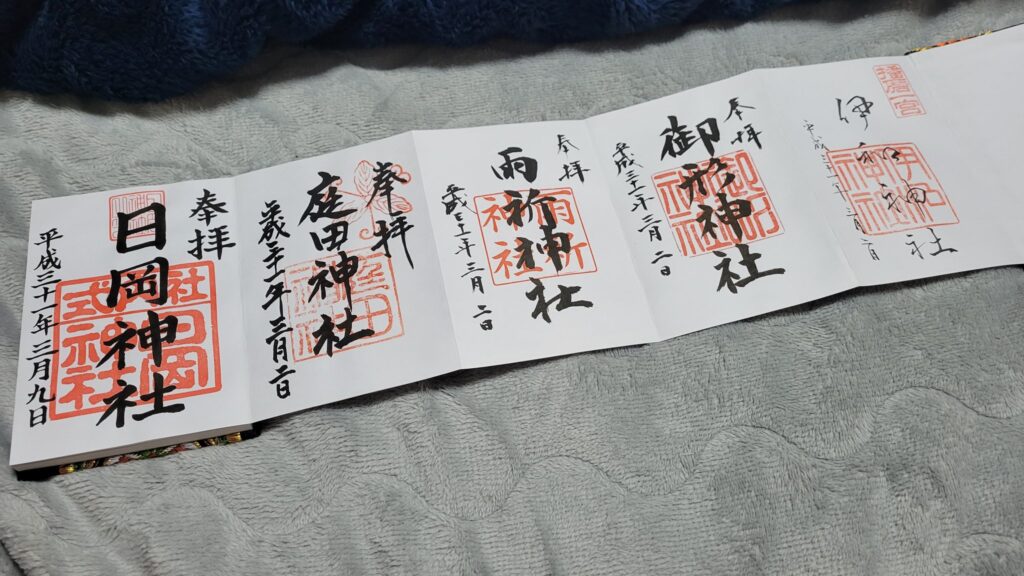 播磨一宮
伊和神社
伊和神社
奉拝
御形神社
御形神社
平成三十一年三月二日
奉拝
雨祈神社
雨祈神社
平成三十一年三月二日
奉拝
庭田神社
庭田神社
平成三十一年三月二日
奉拝
日岡神社
式内社
日岡神社
平成三十一年三月九日